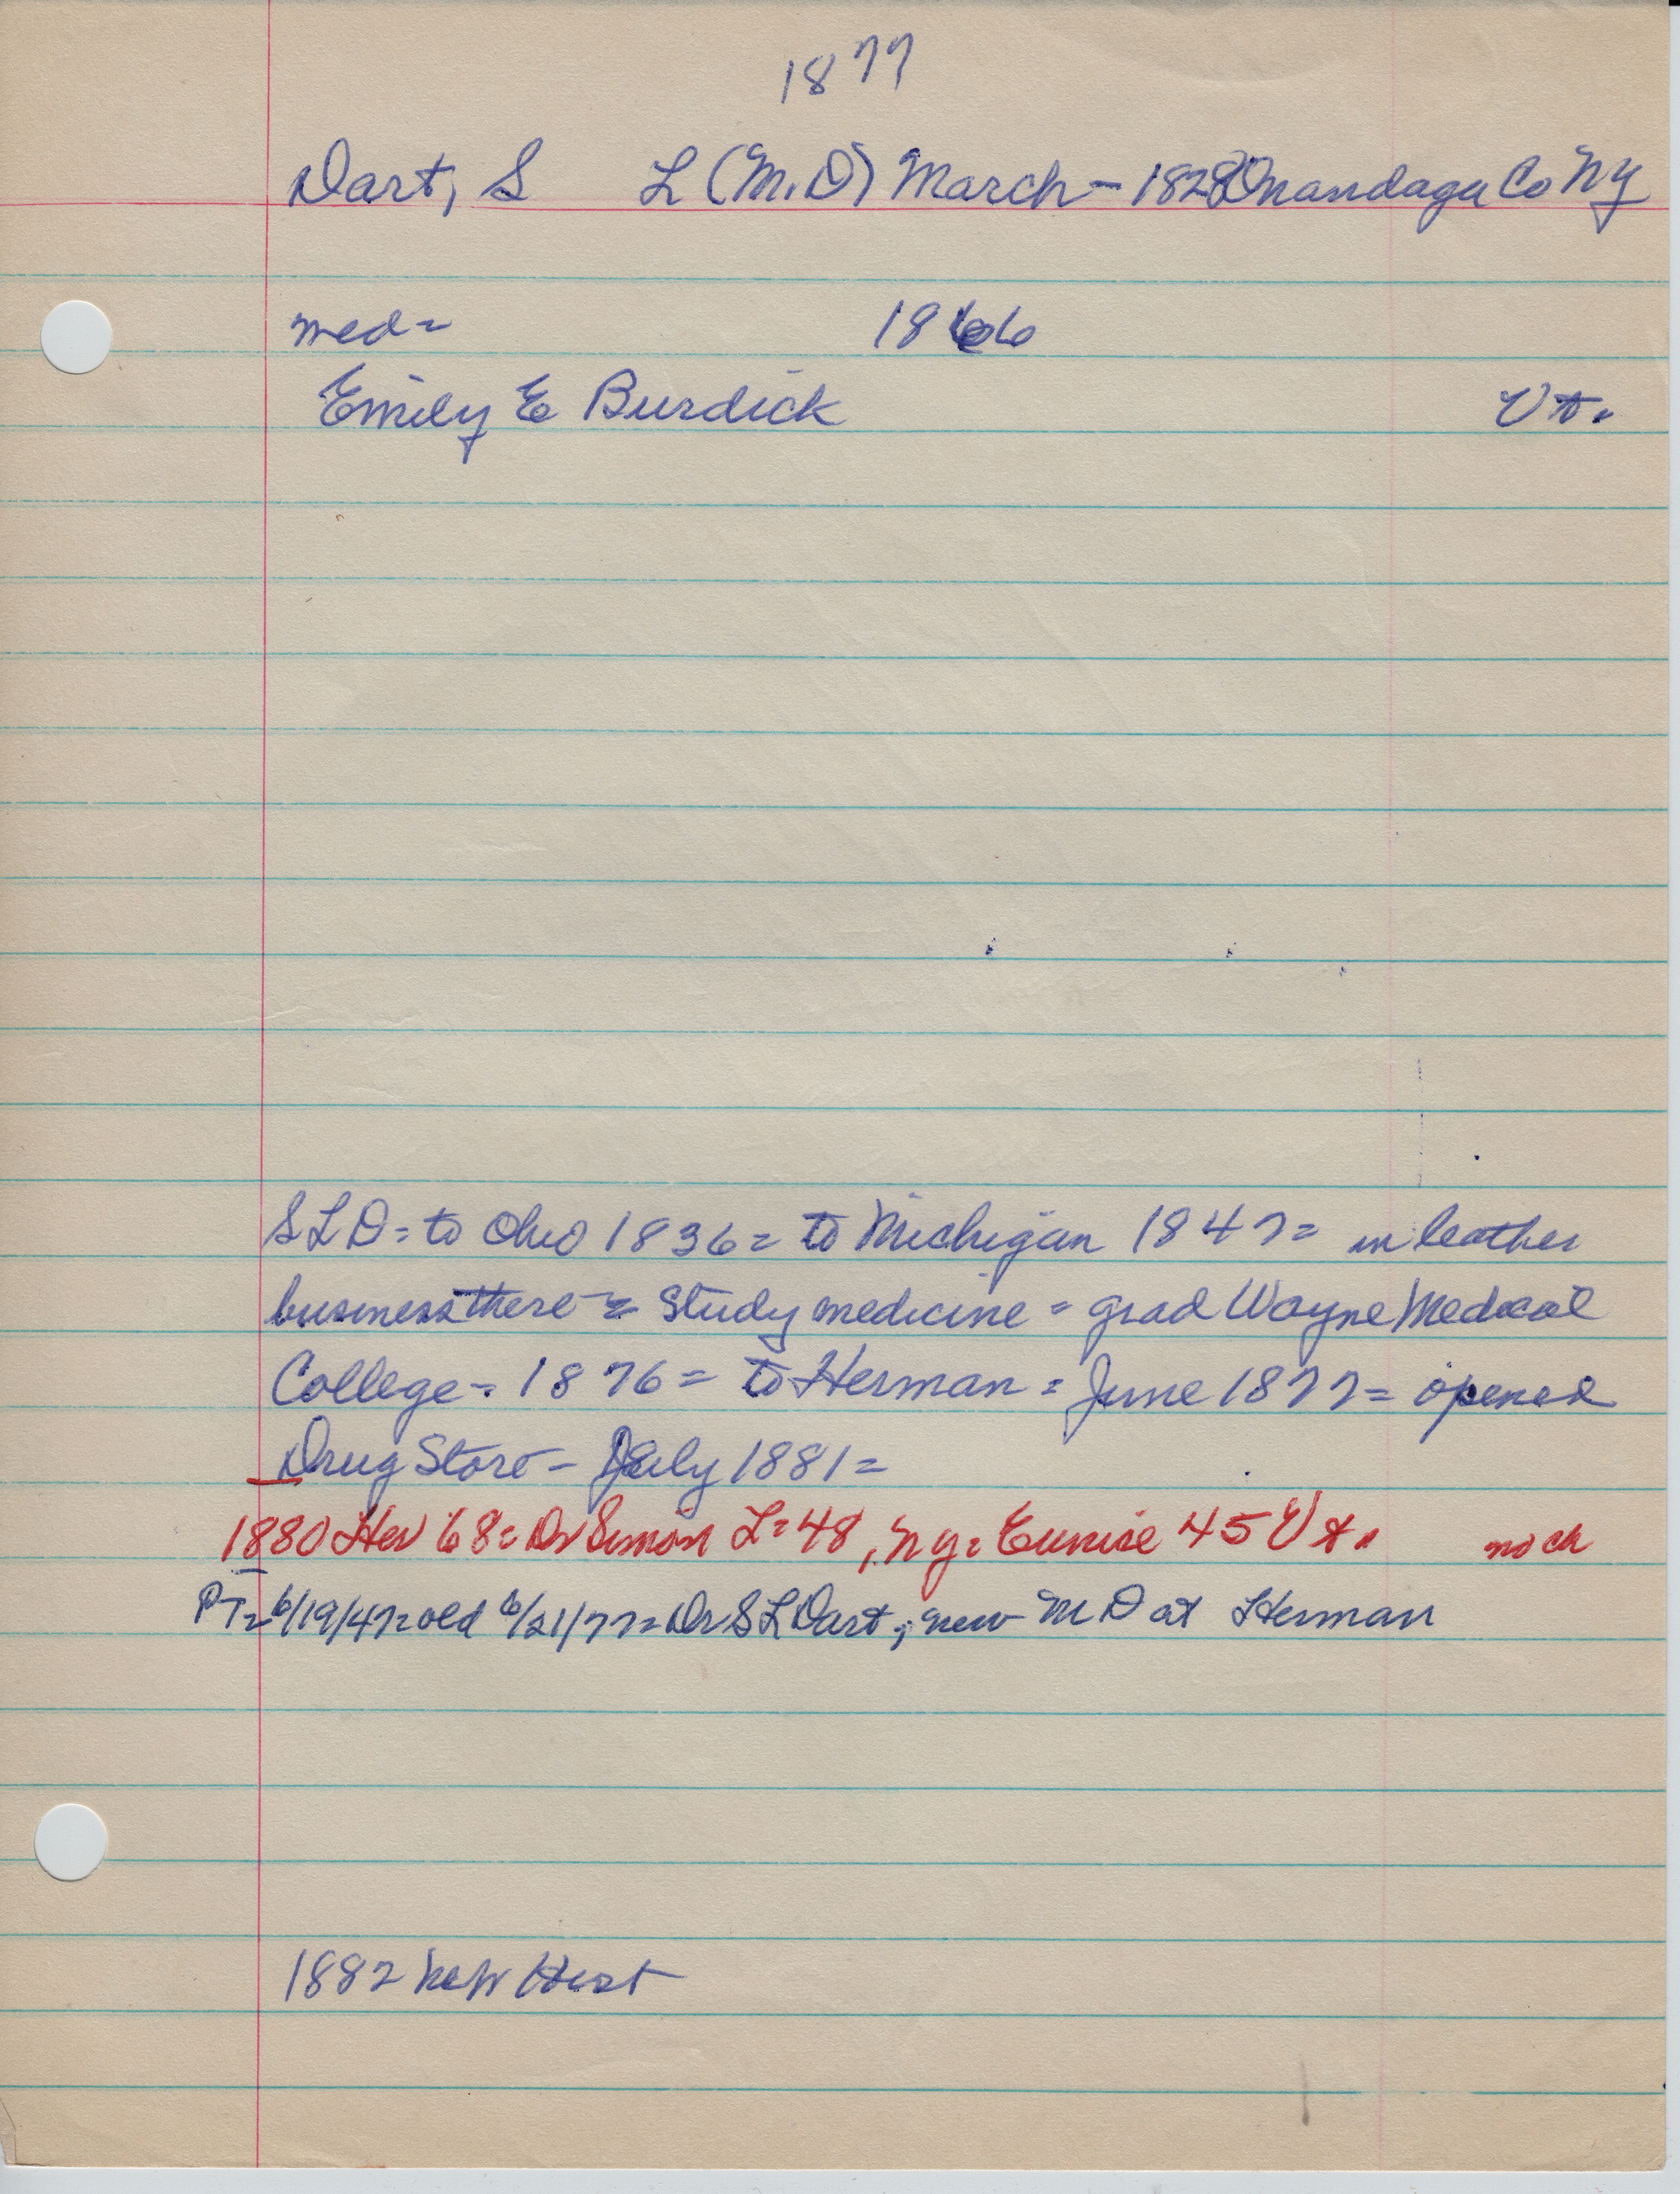 1877
Dart, S L (M.D) March - 1828 Onandaga Co NY
med=
1866
Emily E Burdick Vt.
S L D = to Ohio 1836 = to Michigan 1847 = in leather
business there = Study medicine = grad Wayne Medical
College = 1876 = to Herman = June 1877 = opened
Drug Store - July 1881 =
1880 Her 68 = Dr Simon L = 48, NY = Eunise 45 Vt. no ch
PT = 6/19/47 = old 6/21/77 = Dr S L Dart; new M D at Herman
1882 Neb Hist